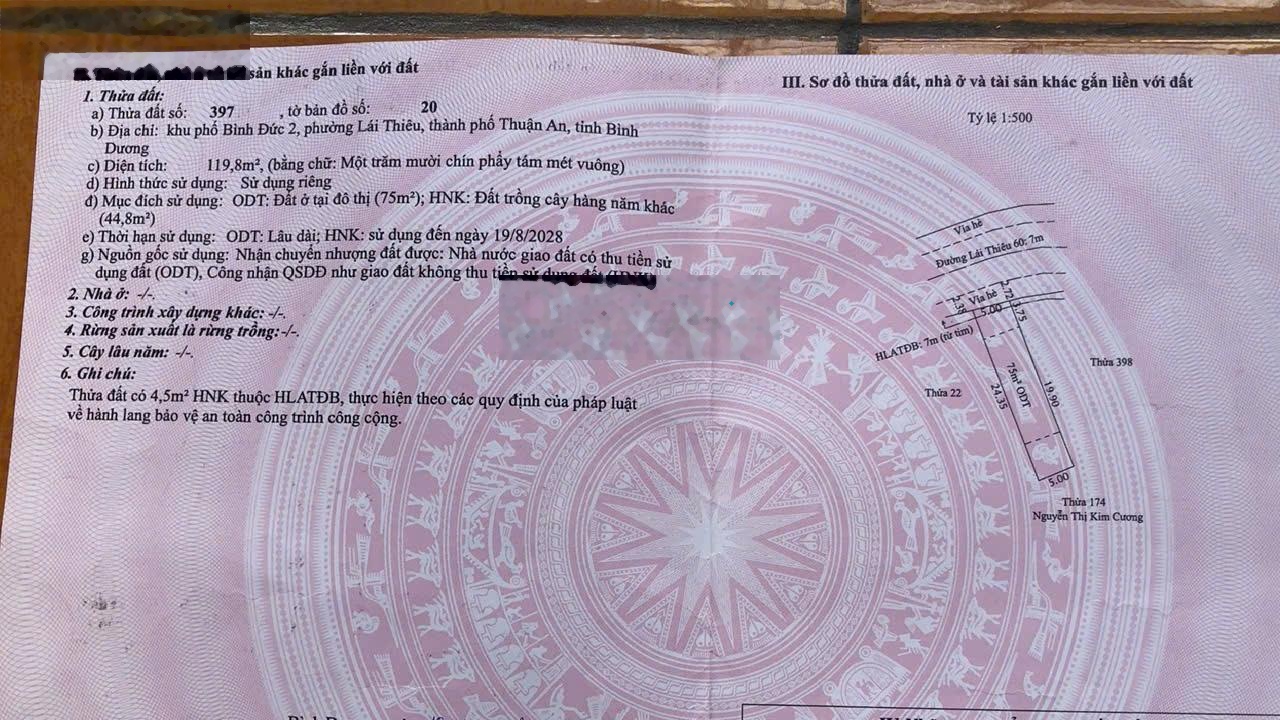 sản khác gắn liền với đất
1. Thửa đất:
a) Thửa đất số: 397 , tờ bản đồ số: 20
b) Địa chỉ: khu phố Bình Đức 2, phường Lái Thiêu, thành phố Thuận An, tỉnh Bình
Dương
c) Diện tích: 119,8m², (bằng chữ: Một trăm mười chín phẩy tám mét vuông)
d) Hình thức sử dụng: Sử dụng riêng
đ) Mục đích sử dụng: ODT: Đất ở tại đô thị (75m²); HNK: Đất trồng cây hàng năm khác
(44,8m²)
e) Thời hạn sử dụng: ODT: Lâu dài; HNK: sử dụng đến ngày 19/8/2028
g) Nguồn gốc sử dụng: Nhận chuyển nhượng đất được: Nhà nước giao đất có thu tiền sử
dụng đất (ODT), Công nhận QSDĐ như giao đất không thu tiền sử dụng đất (HNK)
2. Nhà ở: -/-.
3. Công trình xây dựng khác: -/-.
4. Rừng sản xuất là rừng trồng: -/-.
5. Cây lâu năm: -/-.
6. Ghi chú:
Thửa đất có 4,5m² HNK thuộc HLATĐB, thực hiện theo các quy định của pháp luật
về hành lang bảo vệ an toàn công trình công cộng.
III. Sơ đồ thửa đất, nhà ở và tài sản khác gắn liền với đất
Tỷ lệ 1:500
Vỉa hè
Đường Lái Thiêu 60: 7m
Vỉa hè
2.72
5.00
3.75
HLATĐB: 7m (từ tim)
Thửa 398
Thửa 22
75m² ODT
24.35
19.90
5.00
Thửa 174
Nguyễn Thị Kim Cương